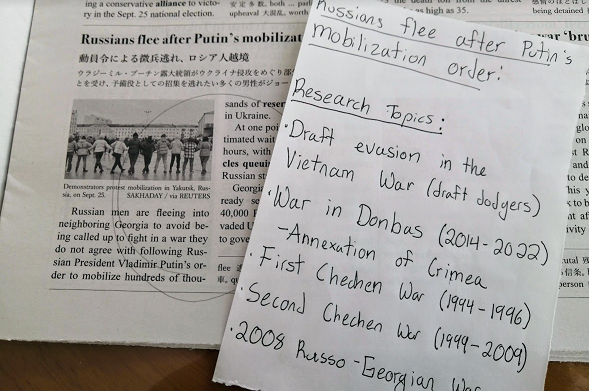 ing a conservative alliance to victo-
ry in the Sept. 25 national election.
Russians flee after Putin's mobilizat
動員令による徴兵逃れ、ロシア人越境
ウラジーミル・プーチン露大統領がウクライナ侵攻をめぐり部
とを受け、予備役としての招集を逃れたい多くの男性がジョー
Demonstrators protest mobilization in Yakutsk, Rus-
sia, on Sept. 25. SAKHADAY / via REUTERS
Russian men are fleeing into
neighboring Georgia to avoid be-
ing called up to fight in a war they
do not agree with following Rus-
sian President Vladimir Putin's or-
der to mobilize hundreds of thou-
sands of reser
in Ukraine.
At one poi
timated wait
hours, with
cles queui
Russian st
Georgi
ready se
40,000
vaded U
to gove
Russians flee after Putin's
mobilization order:
Research Topics:
· Draft evasion in the
Vietnam War (draft dodgers)
· War in Donbas (2014-2022)
- Annexation of Crimea
· First Chechen War (1994-1996)
· Second Chechen War (1999-2009)
· 2008 Russo-Georgian War
as high as 35.
being detained
war 'bru